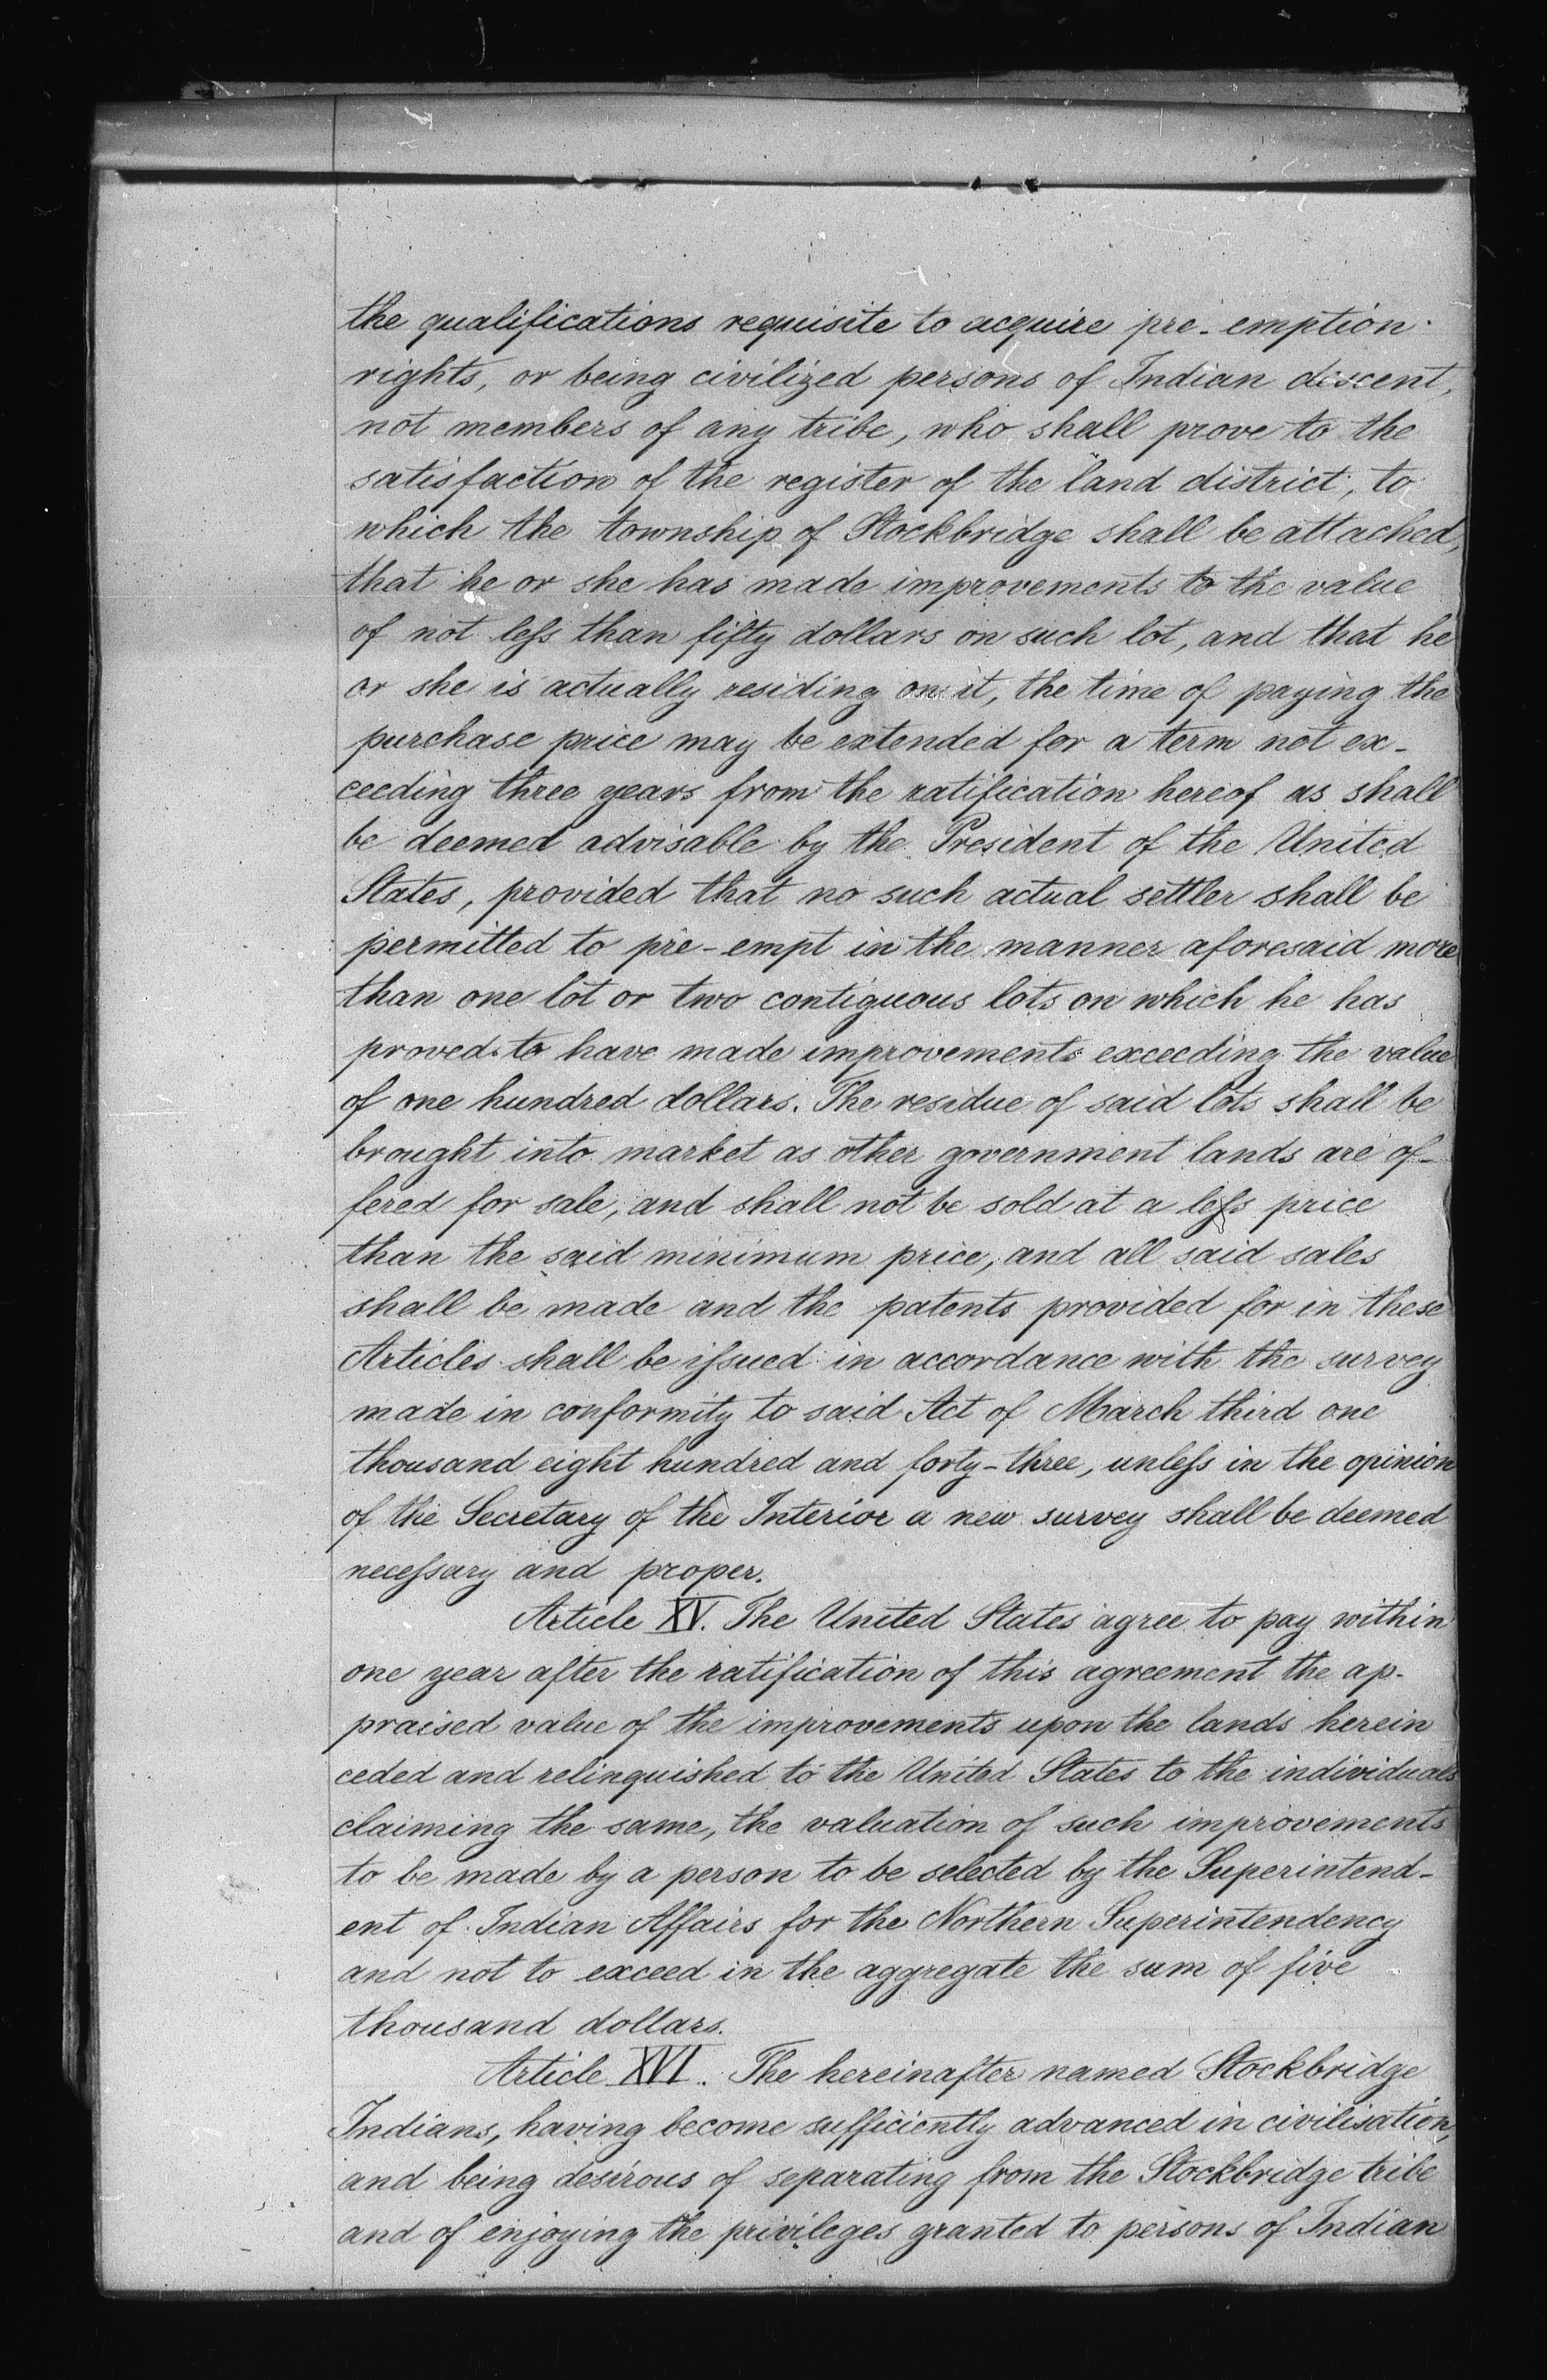 the qualifications requisite to acquire pre-emption
rights, or being civilized persons of Indian descent,
not members of any tribe, who shall prove to the
satisfaction of the register of the land district, to
which the township of Stockbridge shall be attached,
that he or she has made improvements to the value
of not less than fifty dollars on such lot, and that he
or she is actually residing on it, the time of paying the
purchase price may be extended for a term not ex-
ceeding three years from the ratification hereof as shall
be deemed advisable by the President of the United
States, provided that no such actual settler shall be
permitted to pre-empt in the manner aforesaid more
than one lot or two contiguous lots on which he has
proved to have made improvements exceeding the value
of one hundred dollars. The residue of said lots shall be
brought into market as other government lands are of-
fered for sale, and shall not be sold at a less price
than the said minimum price, and all said sales
shall be made and the patents provided for in these
Articles shall be issued in accordance with the survey
made in conformity to said Act of March third one
thousand eight hundred and forty-three, unless in the opinion
of the Secretary of the Interior a new survey shall be deemed
necessary and proper.
Article XV. The United States agree to pay within
one year after the ratification of this agreement the ap-
praised value of the improvements upon the lands herein
ceded and relinquished to the United States to the individuals
claiming the same, the valuation of such improvements
to be made by a person to be selected by the Superintend-
ent of Indian Affairs for the Northern Superintendency
and not to exceed in the aggregate the sum of five
thousand dollars.
Article XVI. The hereinafter named Stockbridge
Indians, having become sufficiently advanced in civilisation,
and being desirous of separating from the Stockbridge tribe
and of enjoying the privileges granted to persons of Indian